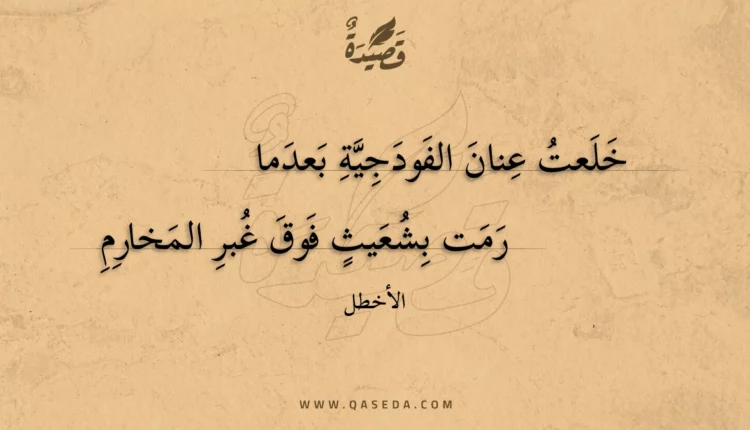 قَصِيْدَةٌ
خَلَعتُ عِنانَ الفَودَجِيَّةِ بَعدَما
رَمَت بِشُعَيثٍ فَوقَ غُبرِ المَخارِمِ
الأخطل
WWW.QASEDA.COM